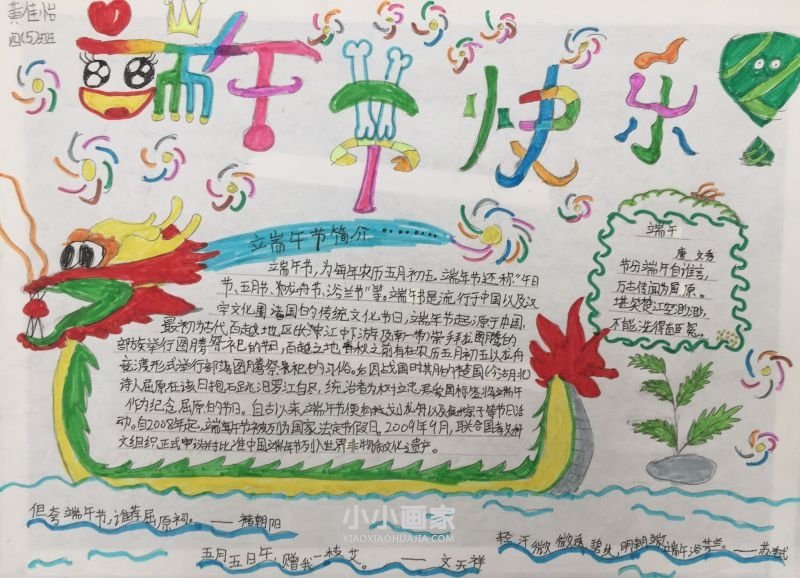 黄佳怡
四(5)班
端午节快乐
端午节简介
端午节,为每年农历五月初五。端午节还称“午日
节、五月节、龙舟节、浴兰节”等。端午节是流行于中国以及汉
字文化圈诸国的传统文化节日,端午节起源于中国,
最初为古代百越地区
部族举行图腾祭祀的节日,百越之地春秋之前有在农历五月初五以龙舟
竞渡形式举行部落图腾祭祀的习俗。后因战国时期的楚国(今湖北)
诗人屈原在该日抱石跳汨罗江自尽,统治者为树立忠君爱国标签将端午
作为纪念屈原的节日。自古以来端午节便有划龙舟以及食粽子等节日活
动。自2008年起,端午节被列为国家法定节假日。2009年9月,联合国教科
文组织正式审议并批准中国端午节列入世界非物质文化遗产。
端午
唐 文秀
节分端午自谁言,
万古传闻为屈原。
堪笑楚江空渺渺,
不能洗得直臣冤。
但夸端午节,谁荐屈原祠。——褚朝阳
五月五日午,赠我一枝艾。——文天祥
轻汗微微透碧纨,明朝端午浴芳兰。——苏轼
小小画家
XIAOXIAOHUAJIA.COM